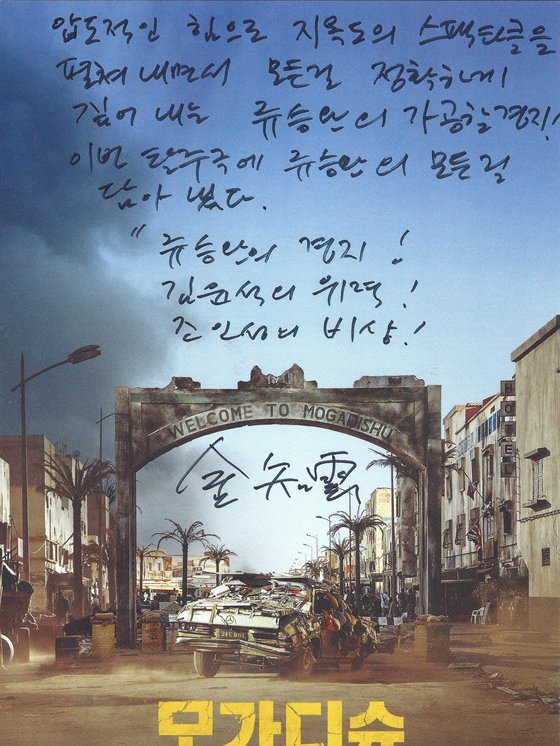 압도적인 힘으로 지옥도의 스펙타클을
펼쳐내면서 모든걸 정확하게
짚어 내는 류승완의 가공할 경지!
이번 탈주극에 류승완의 모든걸
담아 냈다.
"류승완의 경지!
김윤석의 위력!
조인성의 비상!
WELCOME TO MOGADISHU
HOTEL
모가디슈